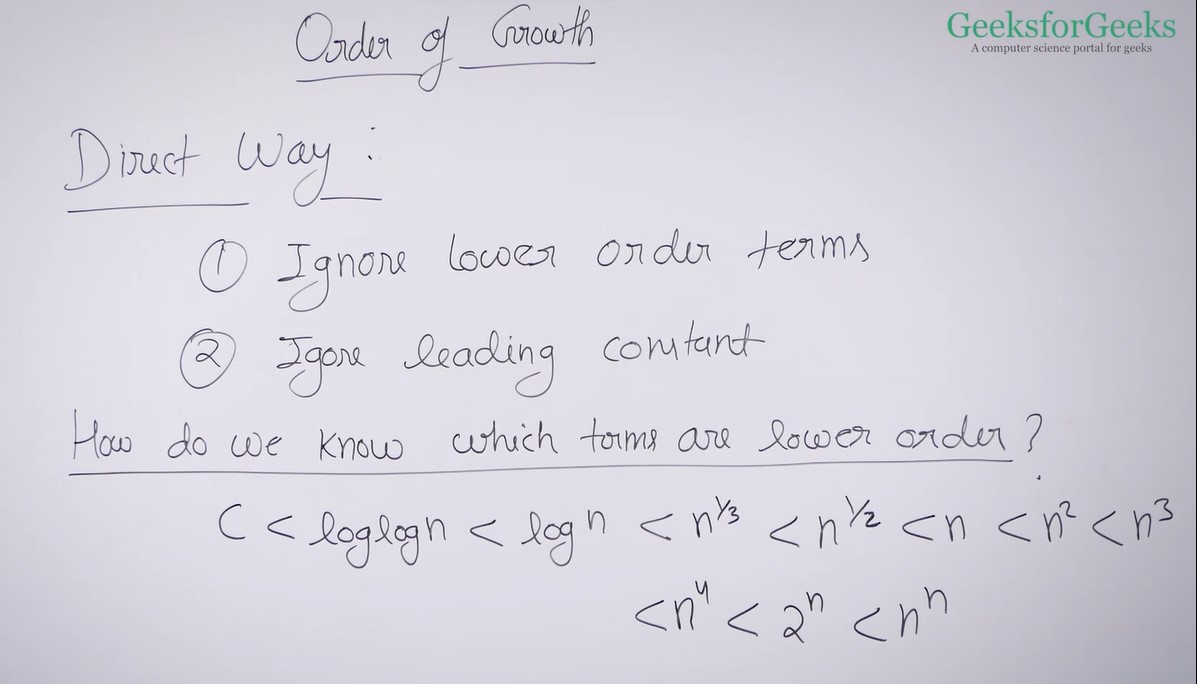 Order of Growth
GeeksforGeeks
A computer science portal for geeks
Direct Way :
① Ignore lower order terms
② Igore leading constant
How do we know which terms are lower order ?
C < loglogn < logn < n^1/3 < n^1/2 < n < n² < n³
< n⁴ < 2ⁿ < nⁿ